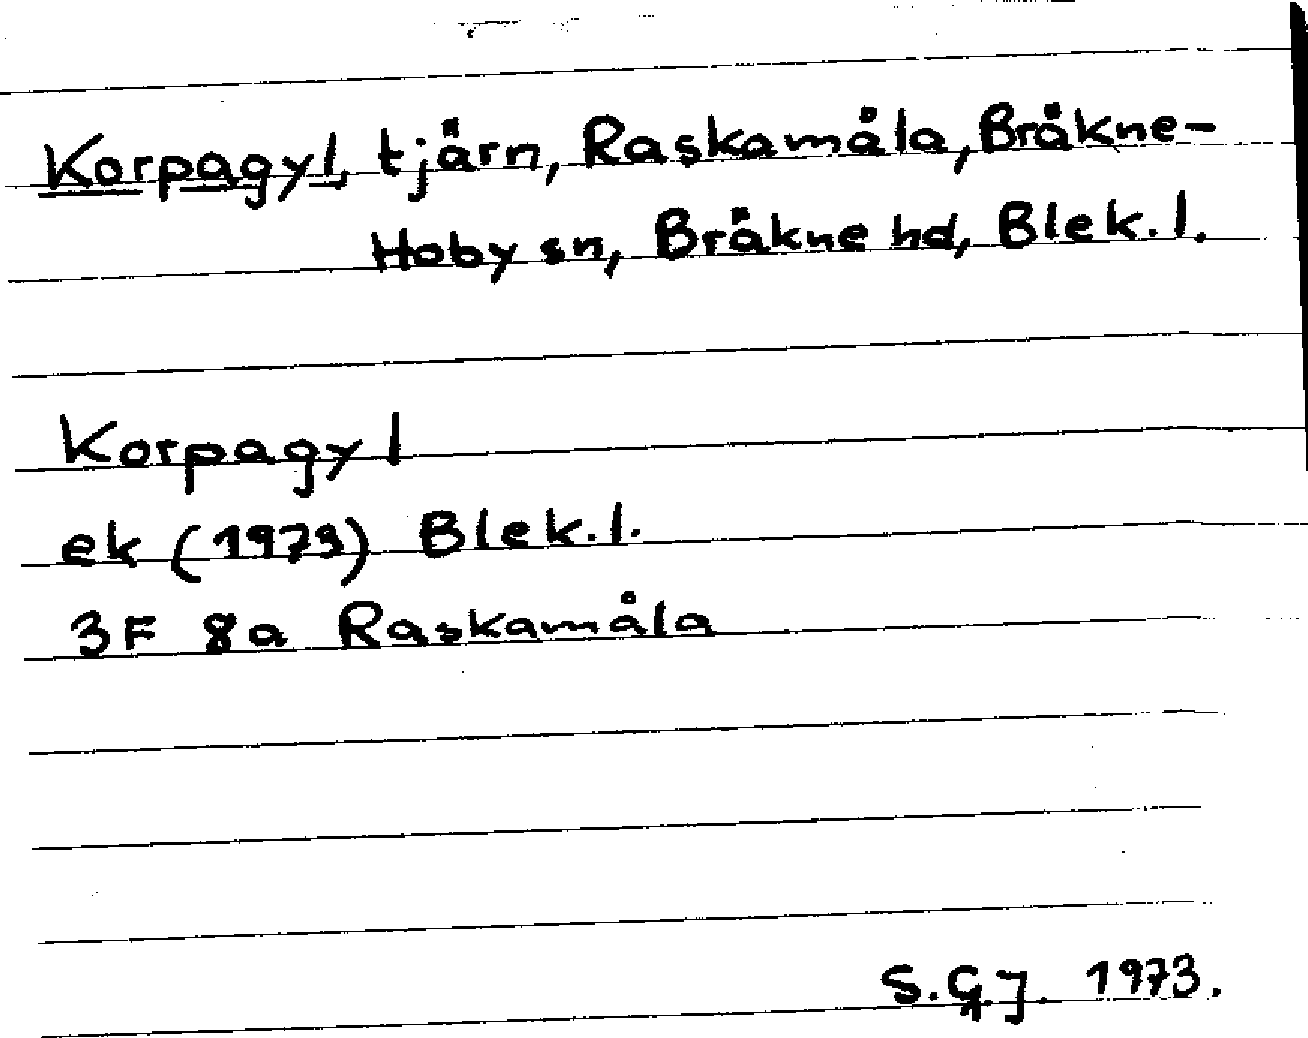 Korpagyl, tjärn, Raskamåla, Bräkne-
Hoby sn, Bräkne hd, Blek. l.
Korpagyl
ek (1973) Blek. l.
3F 8a Raskamåla
S.G.J. 1973.